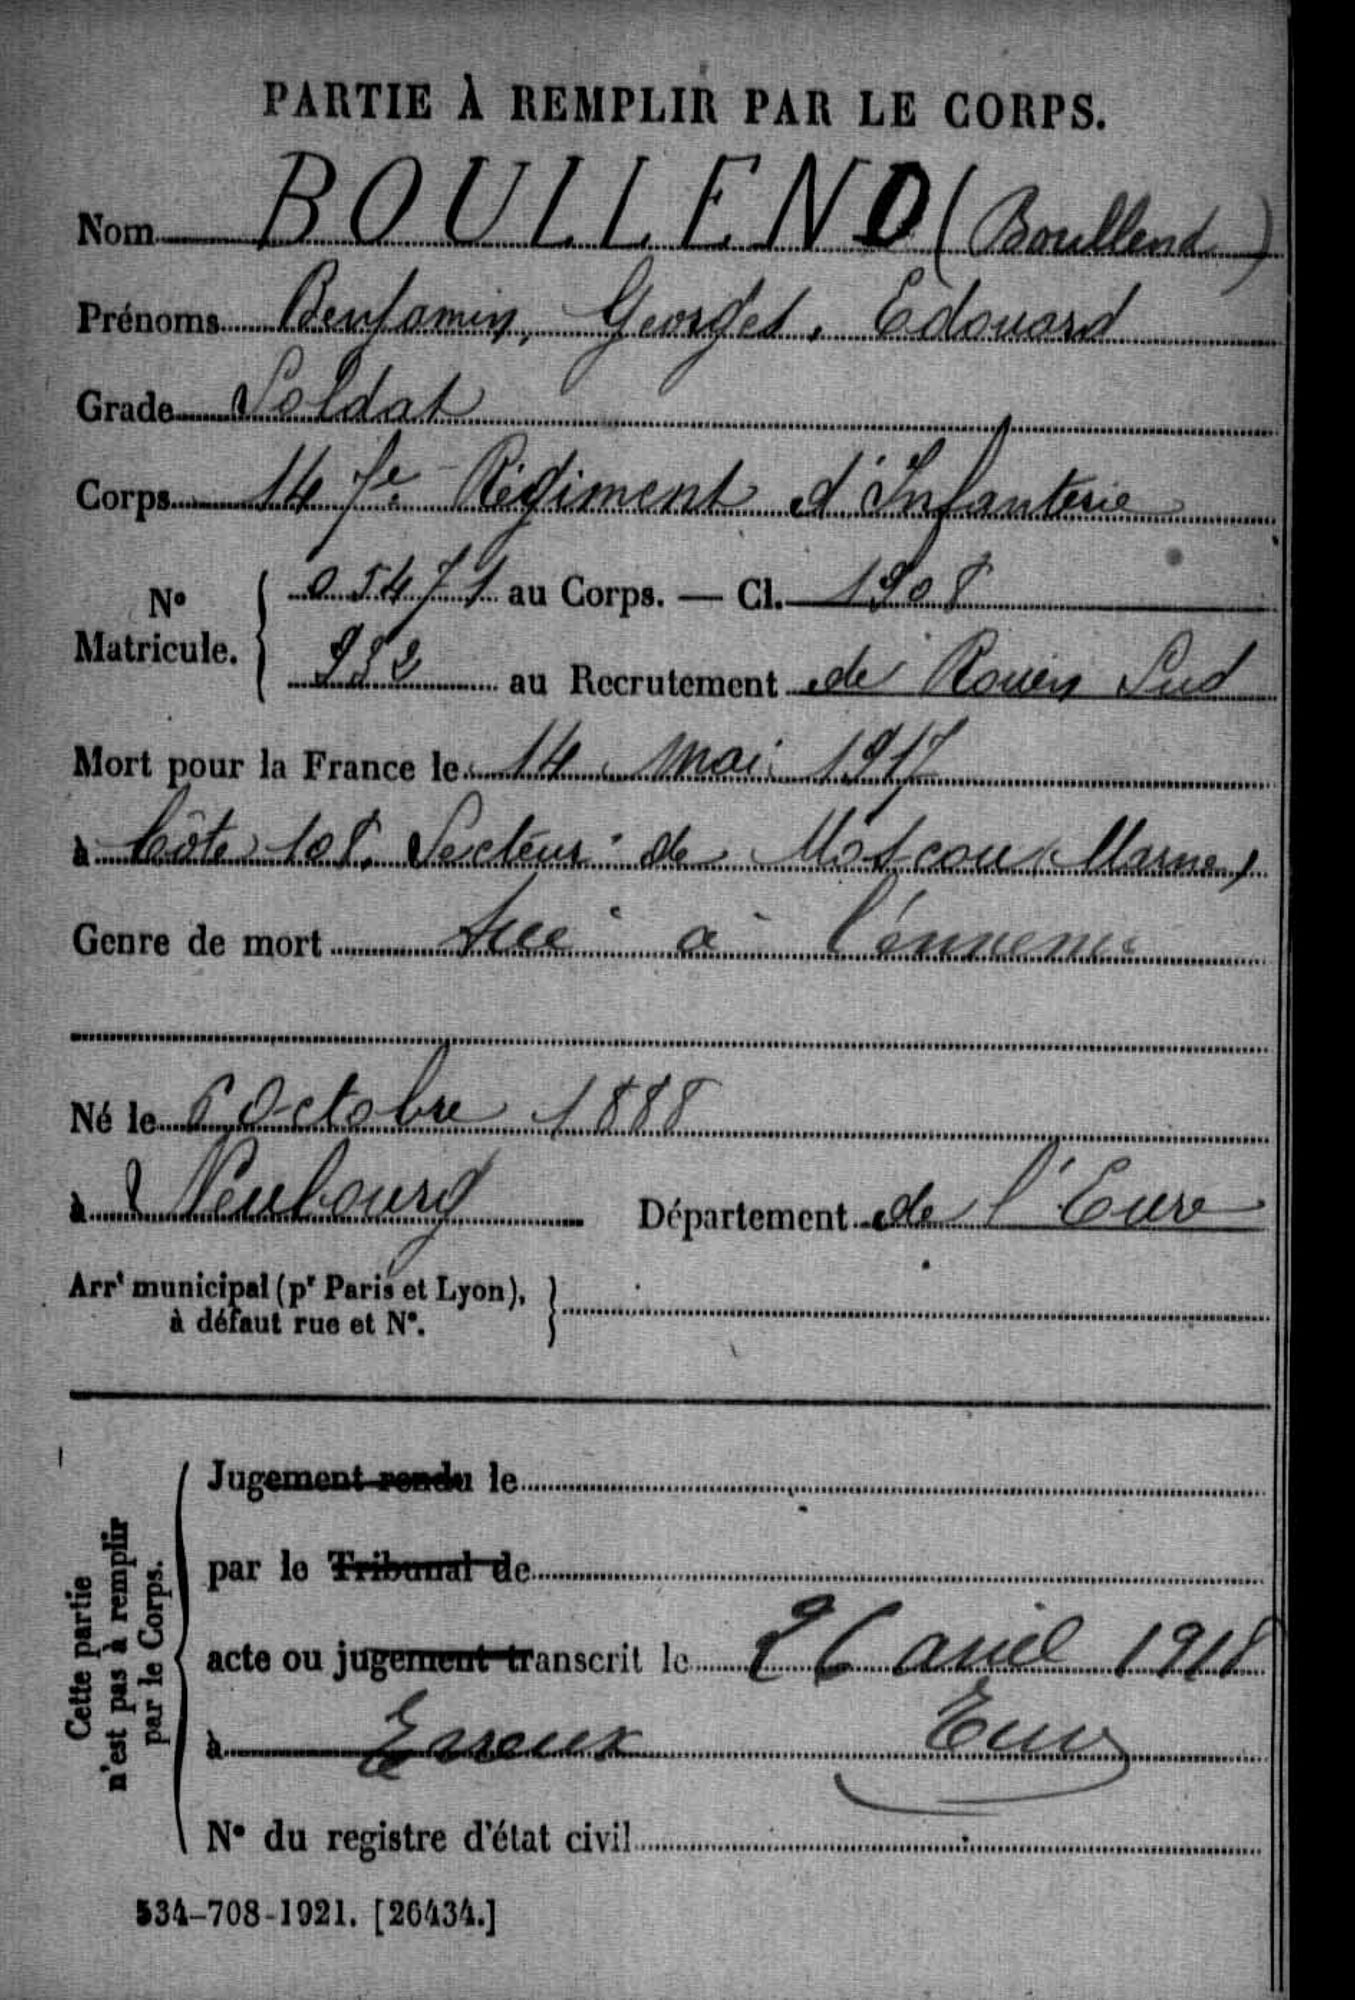 PARTIE À REMPLIR PAR LE CORPS.
Nom BOULLEND (Boullend)
Prénoms Benjamin, Georges, Edouard
Grade Soldat
Corps 147e Régiment d'Infanterie
N° Matricule. { 05471 au Corps. — Cl. 1908
932 au Recrutement de Rouen Sud
Mort pour la France le 14 Mai 1917
à Côte 108. Secteur de Moscou (Marne)
Genre de mort tué à l'ennemi
Né le 6 Octobre 1888
à Neubourg Département de l'Eure
Arrt municipal (pr Paris et Lyon),
à défaut rue et N°.
Cette partie
n'est pas à remplir
par le Corps.
Jugement rendu le
par le Tribunal de
acte ou jugement transcrit le 26 avril 1918
à Evreux Eure
N° du registre d'état civil
534-708-1921. [26434.]